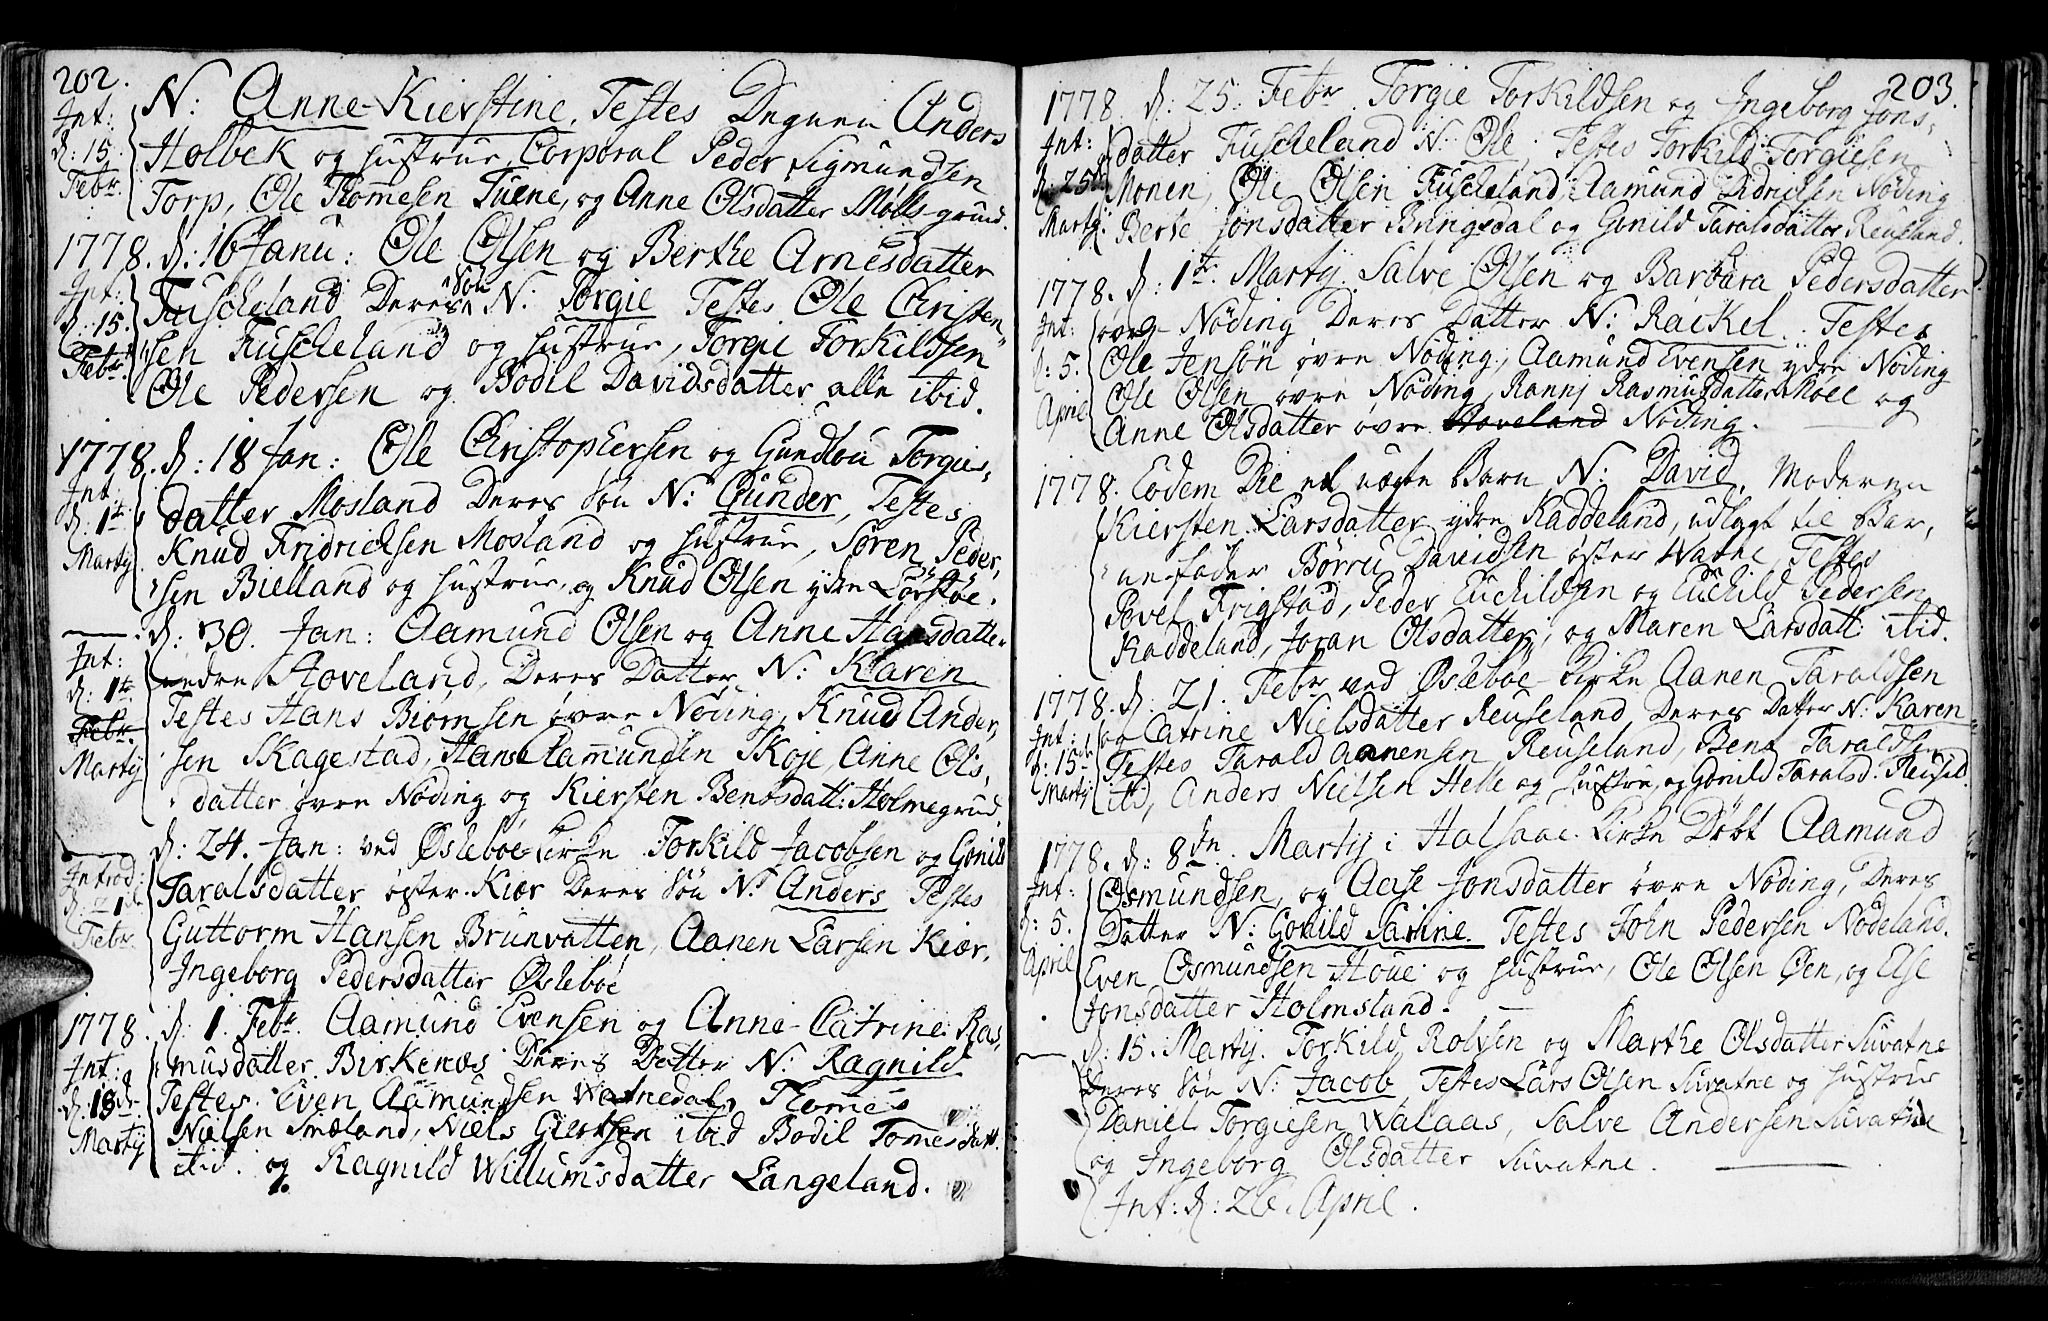 202.
N: Anne-Kierstine, Testes Degnen Anders
Int:
d: 15
Febr.
Holbek og Hustrue, Corporal Peder Sigmundsen
Torp, Ole Thomesen Tuene, og Anne Olsdatter Molls-grund.
1778. d: 16 Janu: Ole Olsen og Berthe Arnesdatter
Int:
d: 15.
Febr.
Fuscheland Deres Søn N: Torgie Testes Ole Christen
sen Fuscheland og Hustrue, Torgie Torkildsen
Ole Pedersen og Bodil Davidsdatter alle ibid.
1778. d: 18 Jan: Ole Christophersen og Gundlou Torgies,
Int:
d: 1te
Martij
datter Mosland Deres Søn N: Gunder, Testes
Knud Fridricksen Mosland og Hustrue, Søren Peder,
sen Bielland og Hustrue, og Knud Olsen ydre Lørskøe.
d: 30. Jan: Aamund Olsen og Anne Hansdatter
Int:
d: 1te
Febr.
Martij
nedre Hoveland, Deres Datter N: Karen
Testes Hans Biornsen øvre Nøding, Knud Ander,
sen Skagestad, Hans Aamundsen Skoje, Anne Ols,
datter øvre Nøding og Kiersten Bentsdatt: Holmegrud.
d: 24. Jan: ved Øslebøe Kirke Torkild Jacobsen og Gonild
Introd:
d: 21de
Febr.
Taralsdatter øster-Kiær Deres Søn N: Anders Testes
Guttorm Hansen Brunvatten, Aanen Larsen Kiær,
Ingeborg Pedersdatter Øslebøe
1778. d: 1. Febr. Aamund Evensen og Anne-Catrine Ras,
Int:
d: 18de
Martij
musdatter Birkenæs Deres Datter N: Ragnild
Testes. Even Aamundsen Watnedal, Thomes
Nielsen Smæland, Niels Giertsen ibid Bodil Tomesdatt.
ibid. og Ragnild Willumsdatter Langeland.
203.
1778. d: 25. Febr. Torgie Torkildsen og Ingeborg Jons,
Int:
d: 25de
Martij.
datter Fuscheland N: Ole, Testes Torkild Torgiesen
Monen, Ole Olsen Fuscheland, Aamund Didricksen Nøding
Berte Jonsdatter Bringsdal og Gonild Taralsdatter Reuseland.
1778. d: 1te. Martij Salve Olsen og Barbara Pedersdatter
Int:
d: 5.
April
øvre Nøding Deres Datter N: Rackel. Testes
Ole Jensøn øvre Nøding, Aamund Evensen ydre Nøding
Ole Olsen øvre Nøding, Ranni Rasmusdatter Skoie og
Anne Olsdatter øvre Hoveland Nøding.
1778. Eodem Die et uægte Barn N: David. Moderen
Kiersten Larsdatter ydre Raddeland, udlagt til Bar,
nefader Børru Davidsen øster Watne, Testes
Povel Frigstad, Peder Euchildsen og Euchild Pedersen
Raddeland, Joran Olsdatter, og Maren Larsdatt: ibid.
1778. d. 21. Febr. ved Øslebøe Kirke Aanen Taraldsen
Int:
d: 15de
Martij
og Catrine Nielsdatter Reuseland, Deres Datter N: Karen
Testes Tarald Aanensen Reuseland, Bent Taraldsen
ibid, Anders Nielsen Helle og Hustru, og Gonild Taralsd. Reusel.
1778. d: 8de. Martij i Halsaae Kirke Døbt Aamund
Int:
d: 5.
April
Osmundsen, og Aase Jonsdatter øvre Nøding, Deres
Datter N: Gonild Sarine. Testes John Pedersen Nodeland.
Even Osmundsen Houe og Hustrue, Ole Olsen Øen, og Else
Jonsdatter Holmsland.
d: 15. Martij. Torkild Rolvsen og Marthe Olsdatter Suvatne
Deres Søn N: Jacob, Testes Lars Olsen Suvatne og Hustrue
Daniel Torgiesen Walaas, Salve Andersen Suvatne
og Ingeborg Olsdatter Suvatne.
Int: d: 26. April.